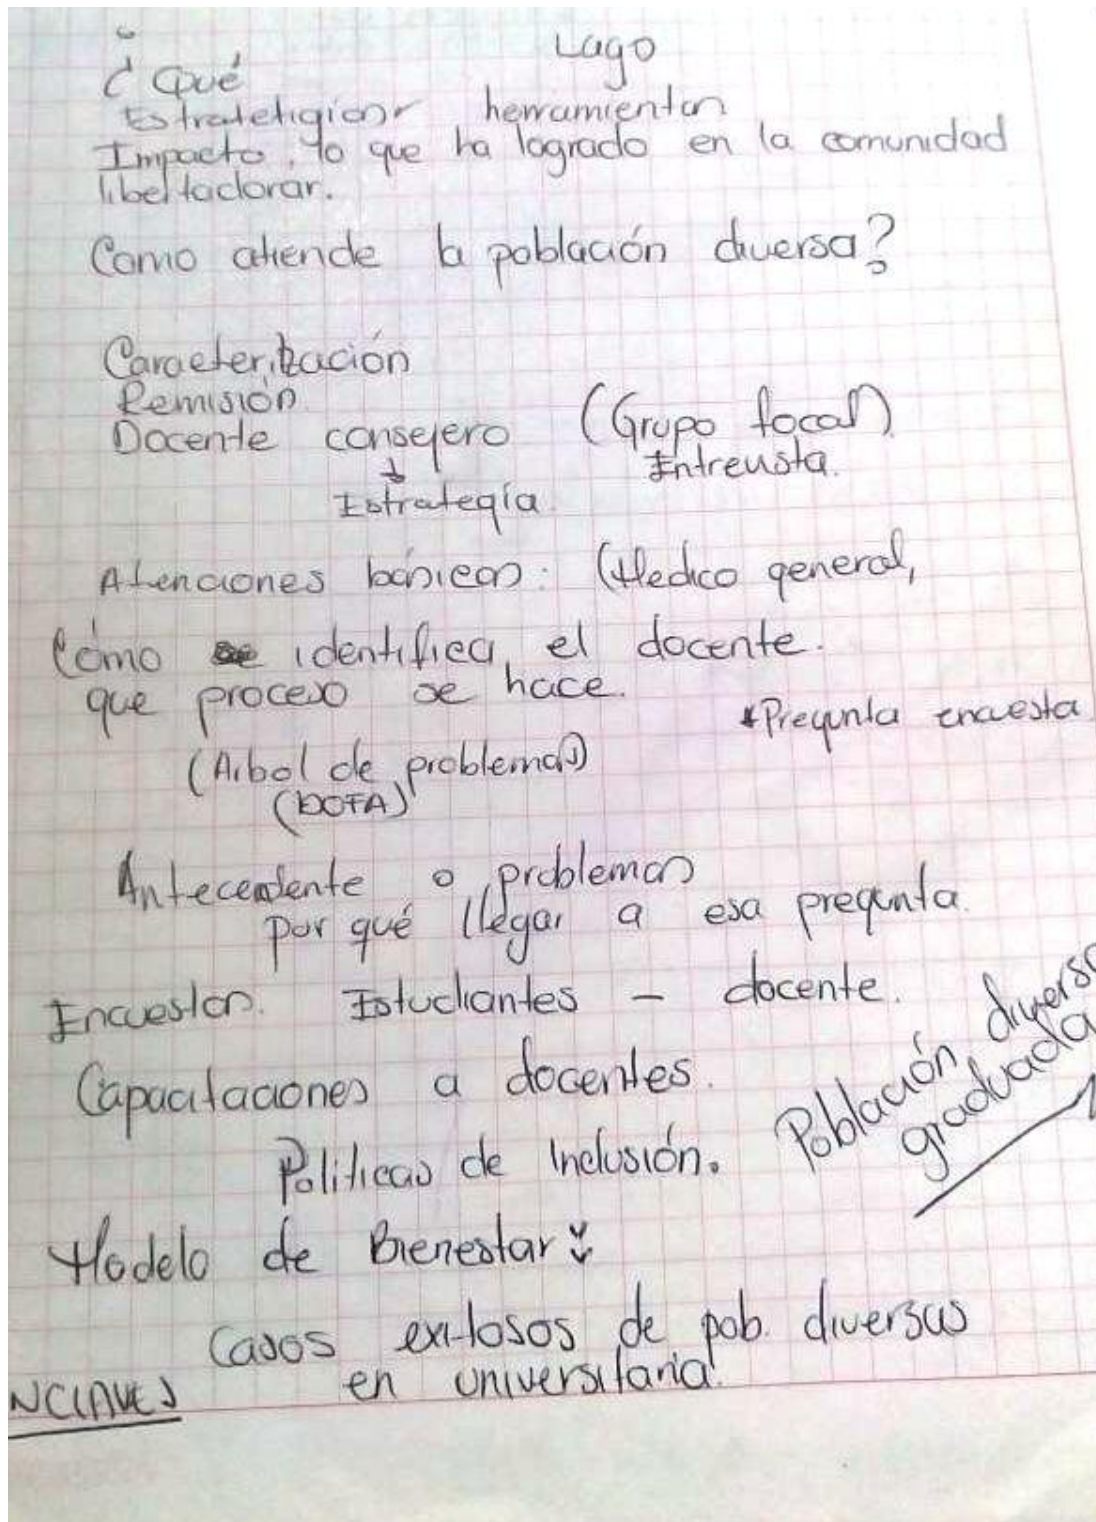 ¿ Qué Lago
herramientas
Impacto, lo que ha logrado en la comunidad
libertadorar.
Como atiende la población diversa?
Caracterización
Remisión
Docente consejero (Grupo focal)
Entrevista.
Estrategía
Atenciones básicas: (Medico general,
Cómo se identifica, el docente.
que proceso se hace.
*Pregunta encuesta
(Arbol de problemas)
(DOFA)
Antecedente o problemas
por qué llegar a esa pregunta.
Encuestas. Estudiantes – docente.
Población diversa
graduada
Capacitaciones a docentes.
Politicas de Inclusión.
Modelo de Bienestar
Casos exitosos de pob. diversas
en universitaria.